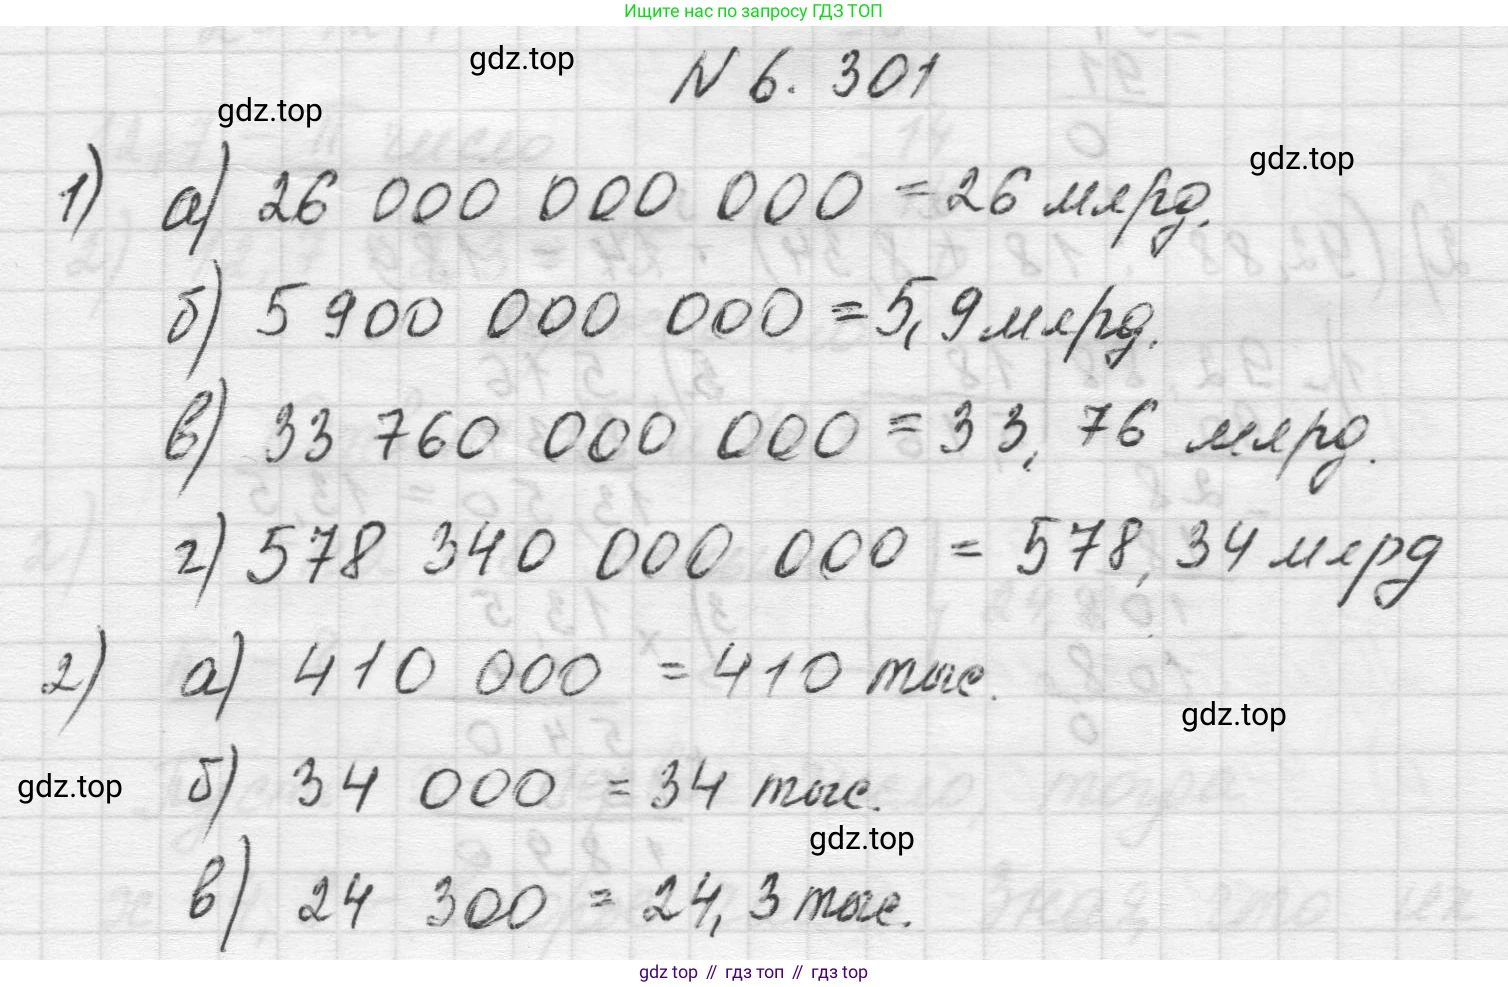 Ищите нас по запросу ГДЗ ТОП
gdz.top
N 6. 301
gdz.top
gdz.top
1) а) 26 000 000 000 = 26 млрд.
б) 5 900 000 000 = 5,9 млрд.
в) 33 760 000 000 = 33, 76 млрд.
г) 578 340 000 000 = 578, 34 млрд
2) а) 410 000 = 410 тыс.
gdz.top
gdz.top
б) 34 000 = 34 тыс.
gdz.top
в) 24 300 = 24, 3 тыс.
gdz top // гдз топ // гдз top